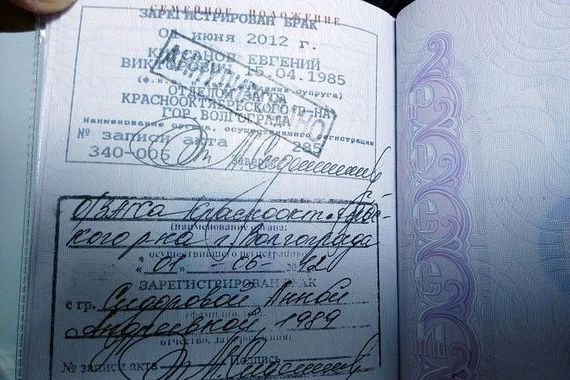 СЕМЕЙНОЕ ПОЛОЖЕНИЕ
ЗАРЕГИСТРИРОВАН БРАК
июня 2012 г.
ЕВГЕНИЙ
15.04.1985
супруга)
КРАСНООКТЯБРЬСКОГО Р-НА
ГОР. ВОЛГОГРАДА
Наименование органа, осуществившего регистрации
№ записи акта 285
340-006
О/ЗАГСа Краснооктябрьс-
кого р-на г. Волгограда
(наименование органа,
осуществившего регистрацию)
"01" 06 2012
ЗАРЕГИСТРИРОВАН БРАК
с гр. Сидоровой Анной
Андреевной, 1989
отчество, дата рождения)
№ записи акта Подпись